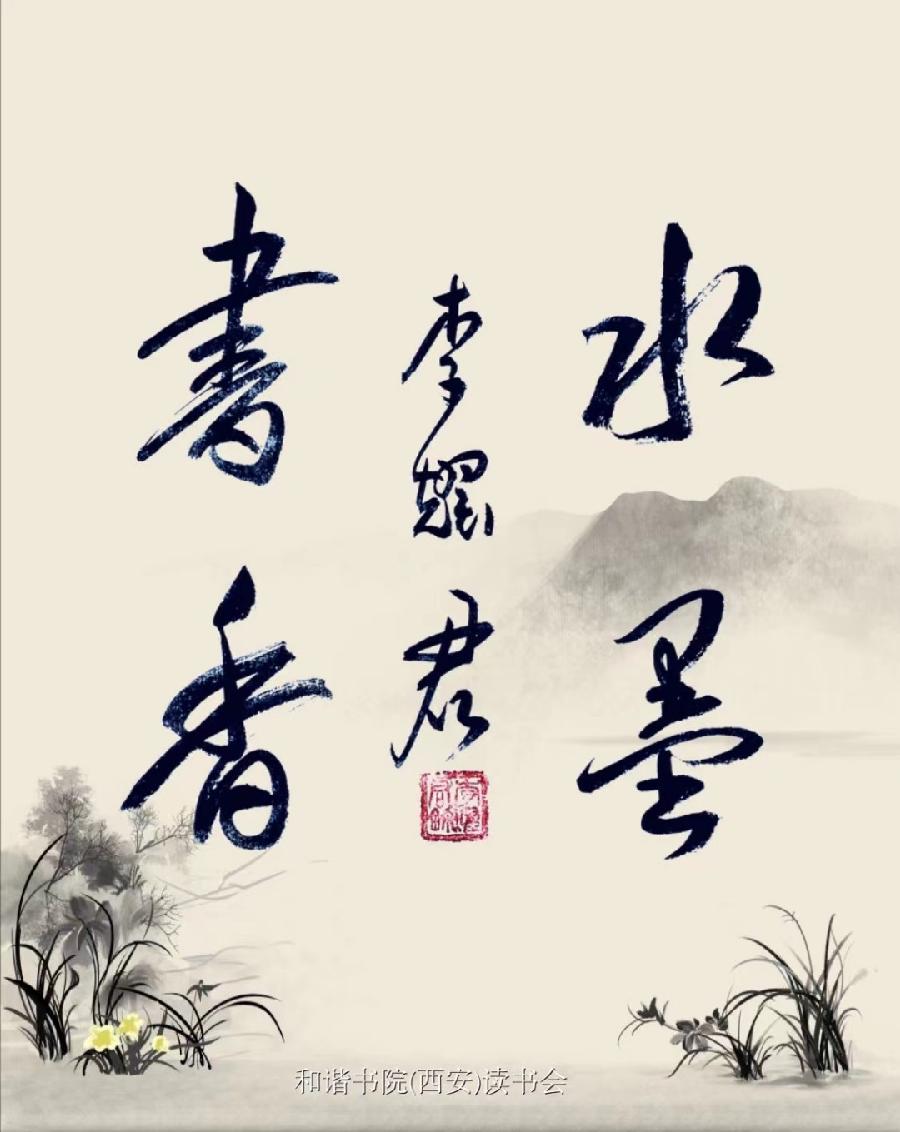 水墨
書香
李耀君
和谐书院(西安)读书会